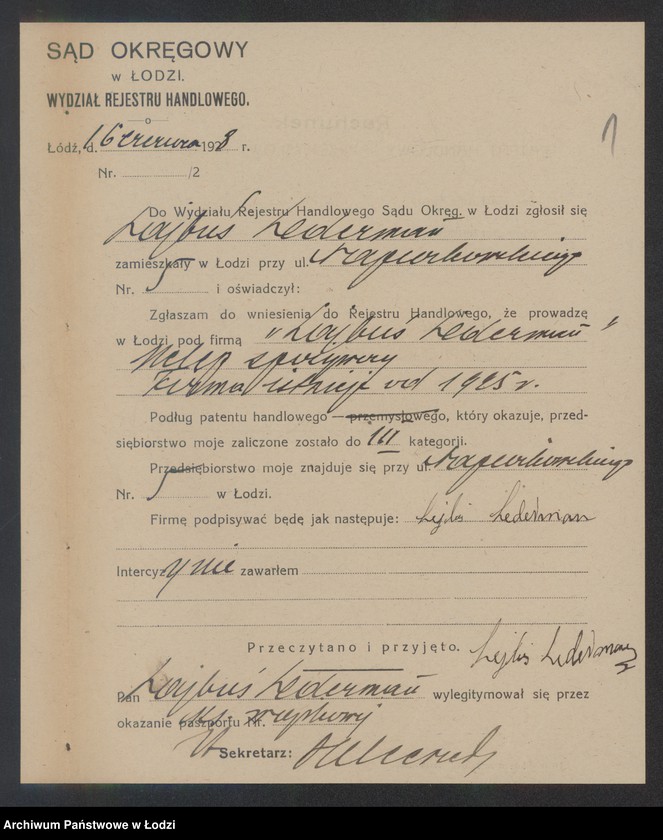 SĄD OKRĘGOWY
w ŁODZI.
WYDZIAŁ REJESTRU HANDLOWEGO.
1
Łódź, d. 16 czerwca 1928 r.
Nr. /2
Do Wydziału Rejestru Handlowego Sądu Okręg. w Łodzi zgłosił się
Lajbuś Lederman
zamieszkały w Łodzi przy ul. Napiórkowskiego
Nr. 5 i oświadczył:
Zgłaszam do wniesienia do Rejestru Handlowego, że prowadzę
w Łodzi pod firmą "Lajbuś Lederman"
sklep spożywczy
Firma istnieje od 1925 r.
Podług patentu handlowego — przemysłowego, który okazuje, przed-
siębiorstwo moje zaliczone zostało do III kategorji.
Przedsiębiorstwo moje znajduje się przy ul. Napiórkowskiego
Nr. 5 w Łodzi.
Firmę podpisywać będę jak następuje: Lejbś Lederman
Intercyzy nie zawarłem
Przeczytano i przyjęto. Lejbś Lederman
Pan Lajbuś Lederman wylegitymował się przez
okazanie paszportu Nr. wojskowej
Sekretarz:
Archiwum Państwowe w Łodzi